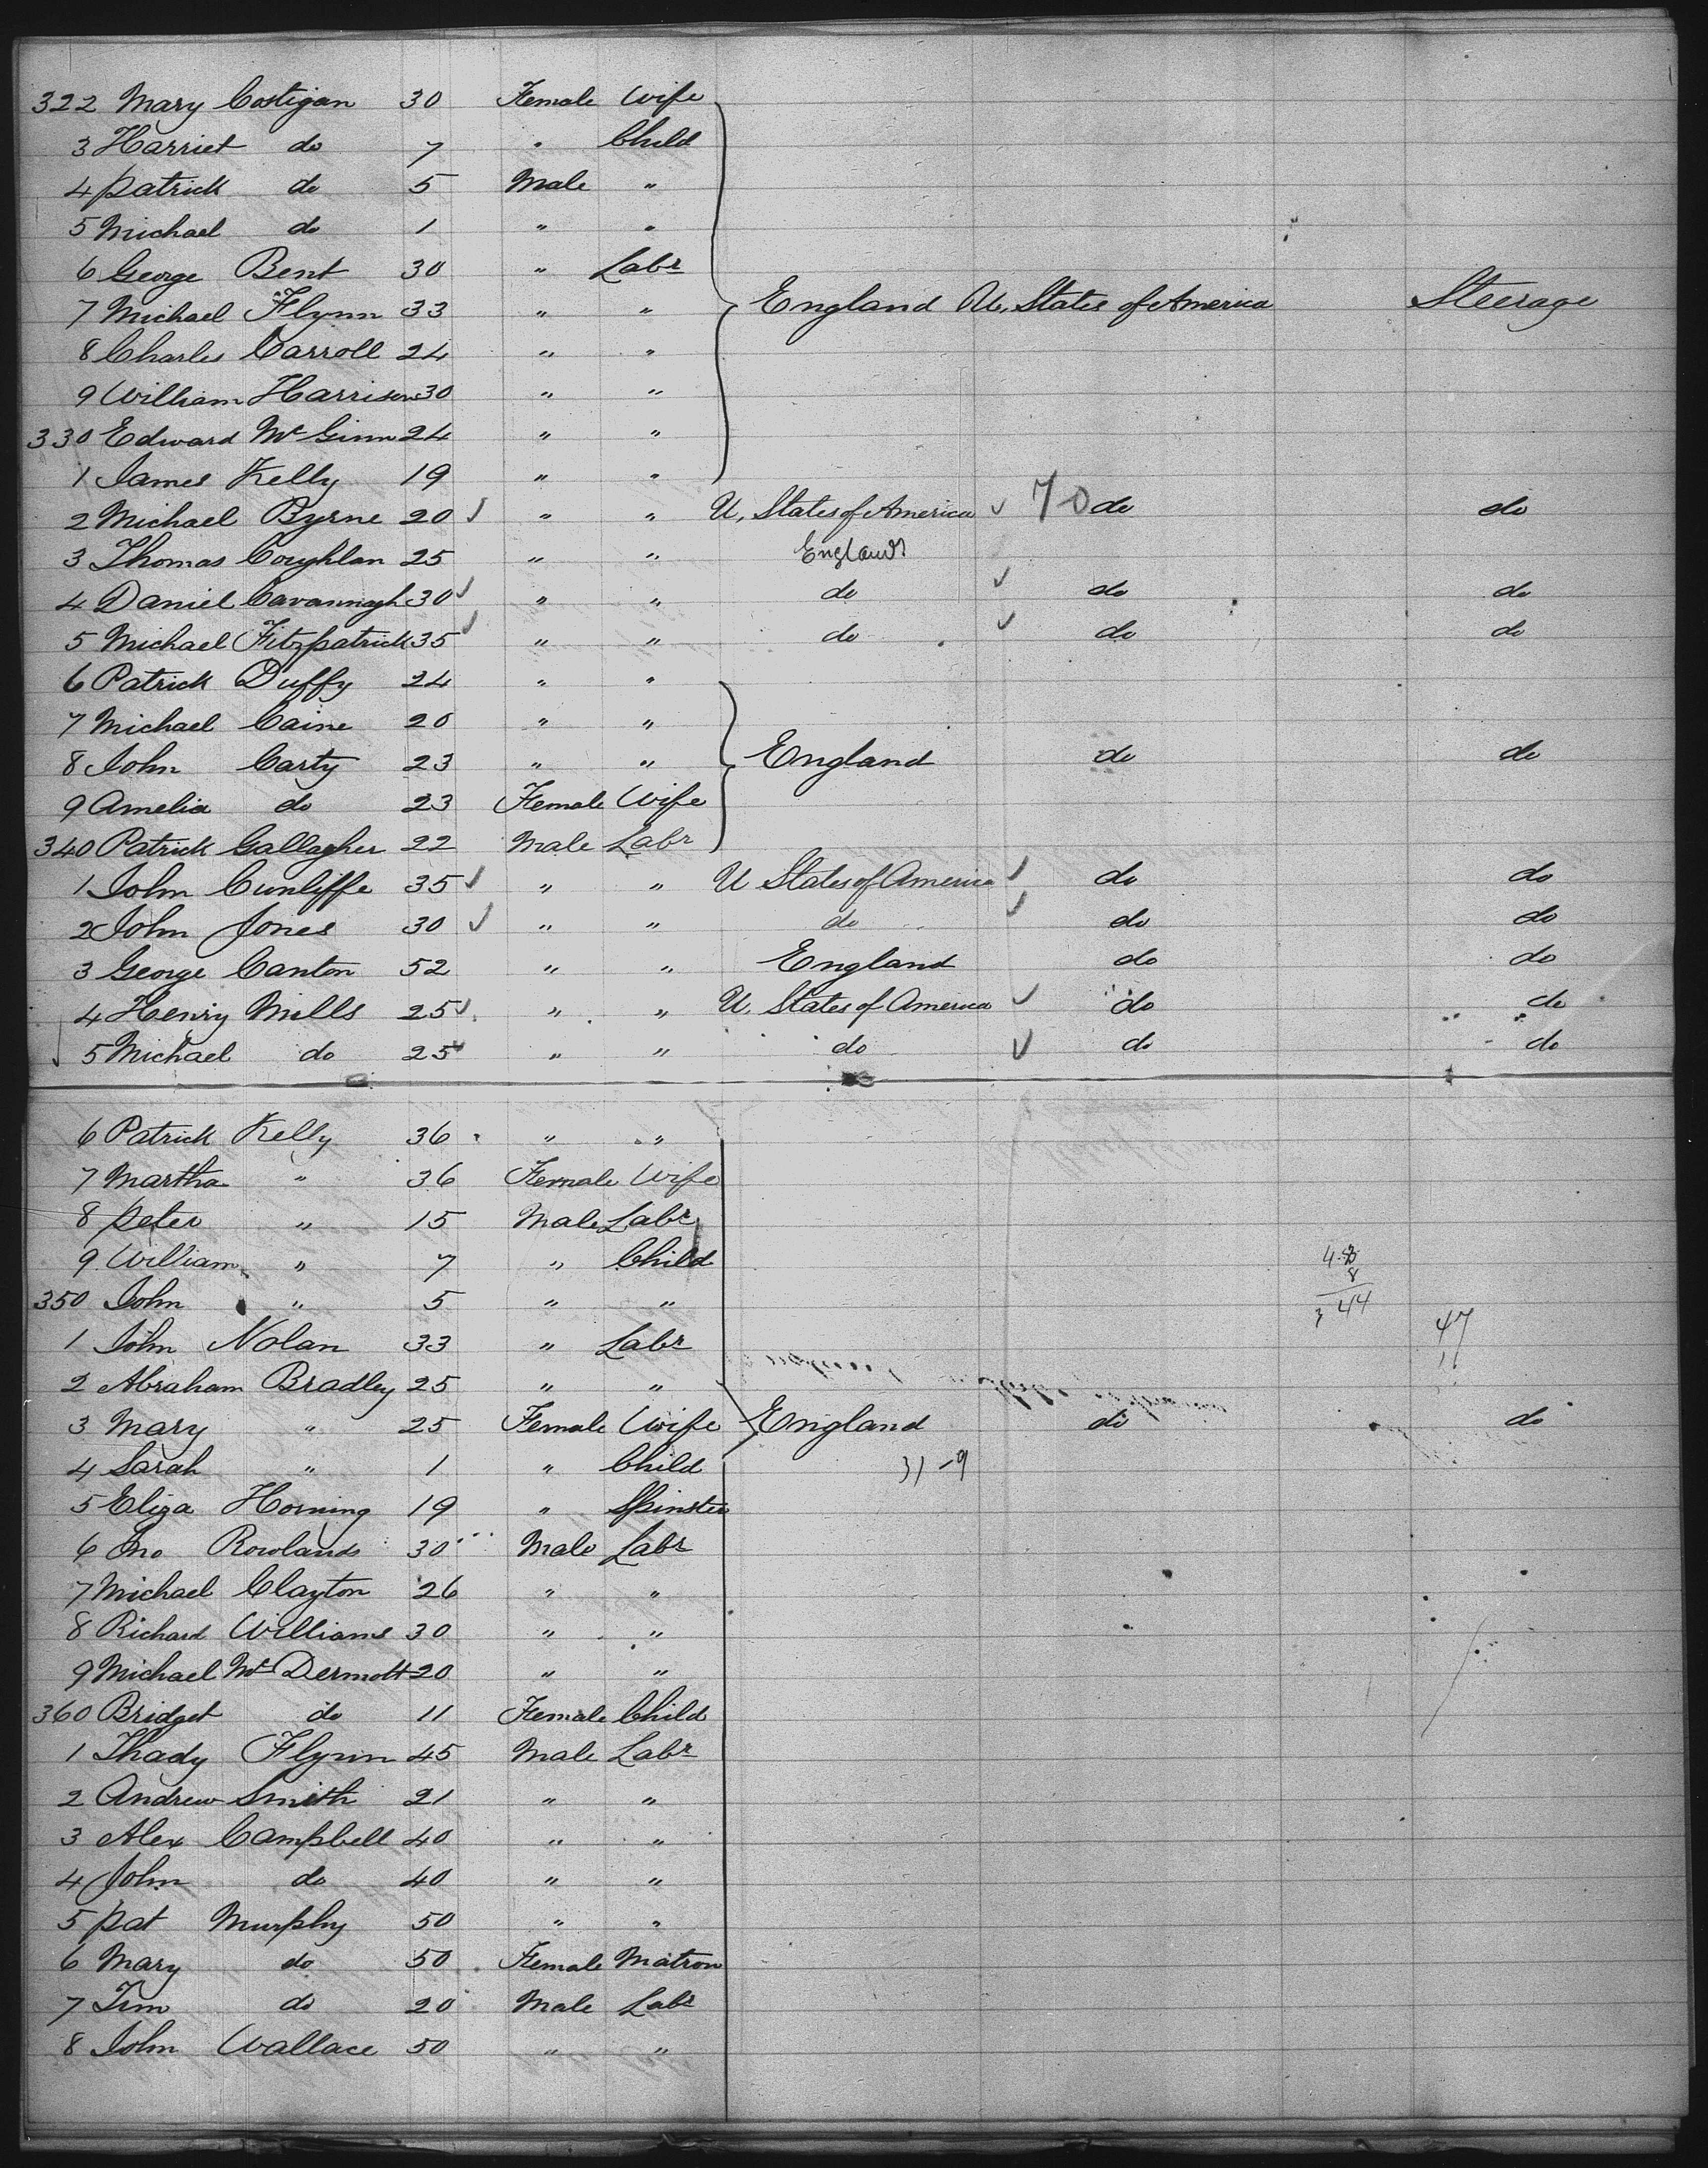 322 Mary Costigan 30 Female Wife
3 Harriet do 7 " Child
4 Patrick do 5 Male "
5 Michael do 1 " "
6 George Bent 30 " Labr
7 Michael Flynn 33 " " England U. States of America Steerage
8 Charles Carroll 24 " "
9 William Harrison 30 " "
330 Edward McGinn 24 " "
1 James Kelly 19 " "
2 Michael Byrne 20 ✓ " " U. States of America ✓ 70 do do
3 Thomas Coughlan 25 " " England
4 Daniel Cavannagh 30 ✓ " " do ✓ do do
5 Michael Fitzpatrick 35 ✓ " " do ✓ do do
6 Patrick Duffy 24 " "
7 Michael Caine 20 " "
8 John Carty 23 " " England do do
9 Amelia do 23 Female Wife
340 Patrick Gallagher 22 Male Labr
1 John Cunliffe 35 ✓ " " U States of America ✓ do do
2 John Jones 30 ✓ " " do ✓ do do
3 George Canton 52 " " England do do
4 Henry Mills 25 ✓ " " U. States of America ✓ do do
5 Michael do 25 ✓ " " do ✓ do do
6 Patrick Kelly 36 " "
7 Martha " 36 Female Wife
8 Peter " 15 Male Labr
9 William " 7 " Child
8
350 John " 5 " " 3 44
1 John Nolan 33 " Labr 47
2 Abraham Bradley 25 " "
3 Mary " 25 Female Wife England do do
4 Sarah " 1 " Child 31-9
5 Eliza Horning 19 " Spinster
6 Jno Rowlands 30 Male Labr
7 Michael Clayton 26 " "
8 Richard Williams 30 " "
9 Michael McDermott 20 " "
360 Bridget do 11 Female Child
1 Thady Flynn 45 Male Labr
2 Andrew Smith 21 " "
3 Alex Campbell 40 " "
4 John do 40 " "
5 Pat Murphy 50 " "
6 Mary do 50 Female Matron
7 Tim do 20 Male Labr
8 John Wallace 50 " "